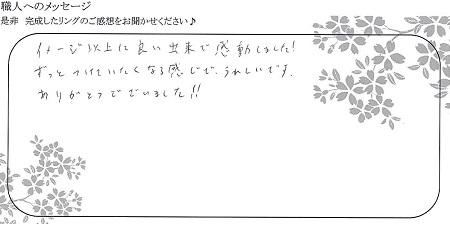 職人へのメッセージ
是非 完成したリングのご感想をお聞かせください♪
イメージ以上に良い出来で感動しました!
ずっとつけていたくなる感じで、うれしいです。
ありがとうございました!!